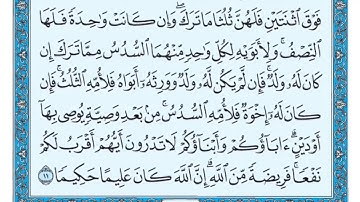 فَوْقَ ٱثْنَتَيْنِ فَلَهُنَّ ثُلُثَا مَا تَرَكَۖ وَإِن كَانَتْ وَٰحِدَةً فَلَهَا
ٱلنِّصْفُۚ وَلِأَبَوَيْهِ لِكُلِّ وَٰحِدٍ مِّنْهُمَا ٱلسُّدُسُ مِمَّا تَرَكَ إِن
كَانَ لَهُۥ وَلَدٌۚ فَإِن لَّمْ يَكُن لَّهُۥ وَلَدٌ وَوَرِثَهُۥٓ أَبَوَاهُ فَلِأُمِّهِ ٱلثُّلُثُۚ فَإِن
كَانَ لَهُۥٓ إِخْوَةٌ فَلِأُمِّهِ ٱلسُّدُسُۚ مِنۢ بَعْدِ وَصِيَّةٍ يُوصِي بِهَآ
أَوْ دَيْنٍۗ ءَابَآؤُكُمْ وَأَبْنَآؤُكُمْ لَا تَدْرُونَ أَيُّهُمْ أَقْرَبُ لَكُمْ
نَفْعًاۚ فَرِيضَةً مِّنَ ٱللَّهِۗ إِنَّ ٱللَّهَ كَانَ عَلِيمًا حَكِيمًا ١١